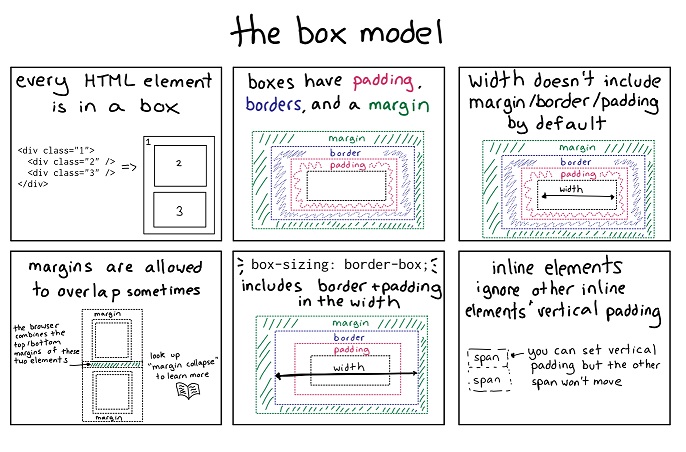 the box model
every HTML element
is in a box
<div class="1">
<div class="2" />
<div class="3" />
</div>
=>
1
2
3
boxes have padding,
borders, and a margin
margin
border
padding
width doesn't include
margin/border/padding
by default
margin
border
padding
width
margins are allowed
to overlap sometimes
margin
the browser
combines the
top/bottom
margins of these
two elements
look up
"margin collapse"
to learn more
margin
box-sizing: border-box;
includes border + padding
in the width
margin
border
padding
width
inline elements
ignore other inline
elements' vertical padding
span
span
you can set vertical
padding but the other
span won't move